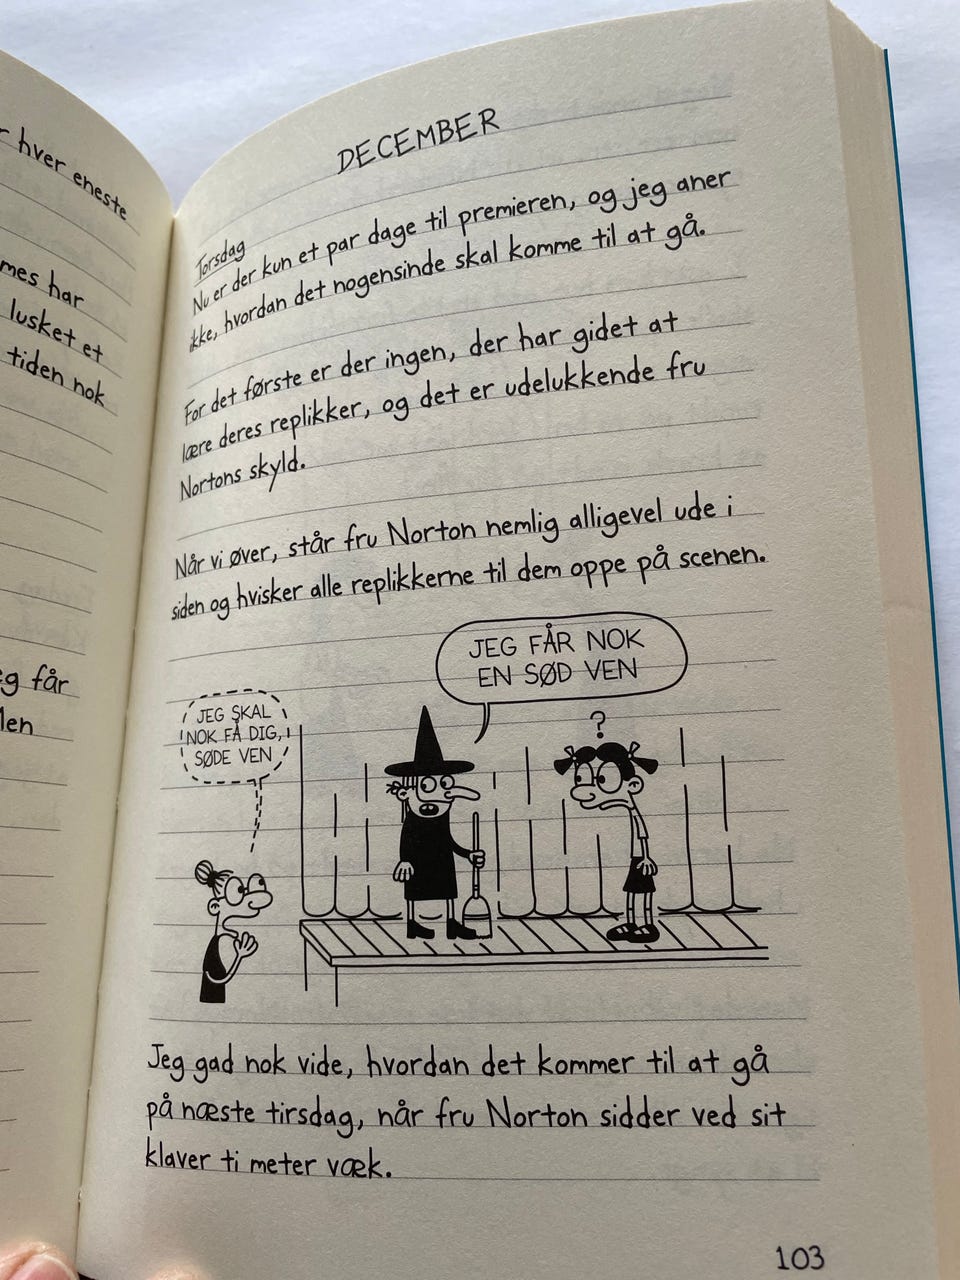 hver eneste
mes har
lusket et
tiden nok
får
DECEMBER
Torsdag
Nu er der kun et par dage til premieren, og jeg aner
ikke, hvordan det nogensinde skal komme til at gå.
For det første er der ingen, der har gidet at
lære deres replikker, og det er udelukkende fru
Nortons skyld.
Når vi øver, står fru Norton nemlig alligevel ude i
siden og hvisker alle replikkerne til dem oppe på scenen.
JEG FÅR NOK
EN SØD VEN
JEG SKAL
NOK FÅ DIG,
SØDE VEN
?
Jeg gad nok vide, hvordan det kommer til at gå
på næste tirsdag, når fru Norton sidder ved sit
klaver ti meter væk.
103